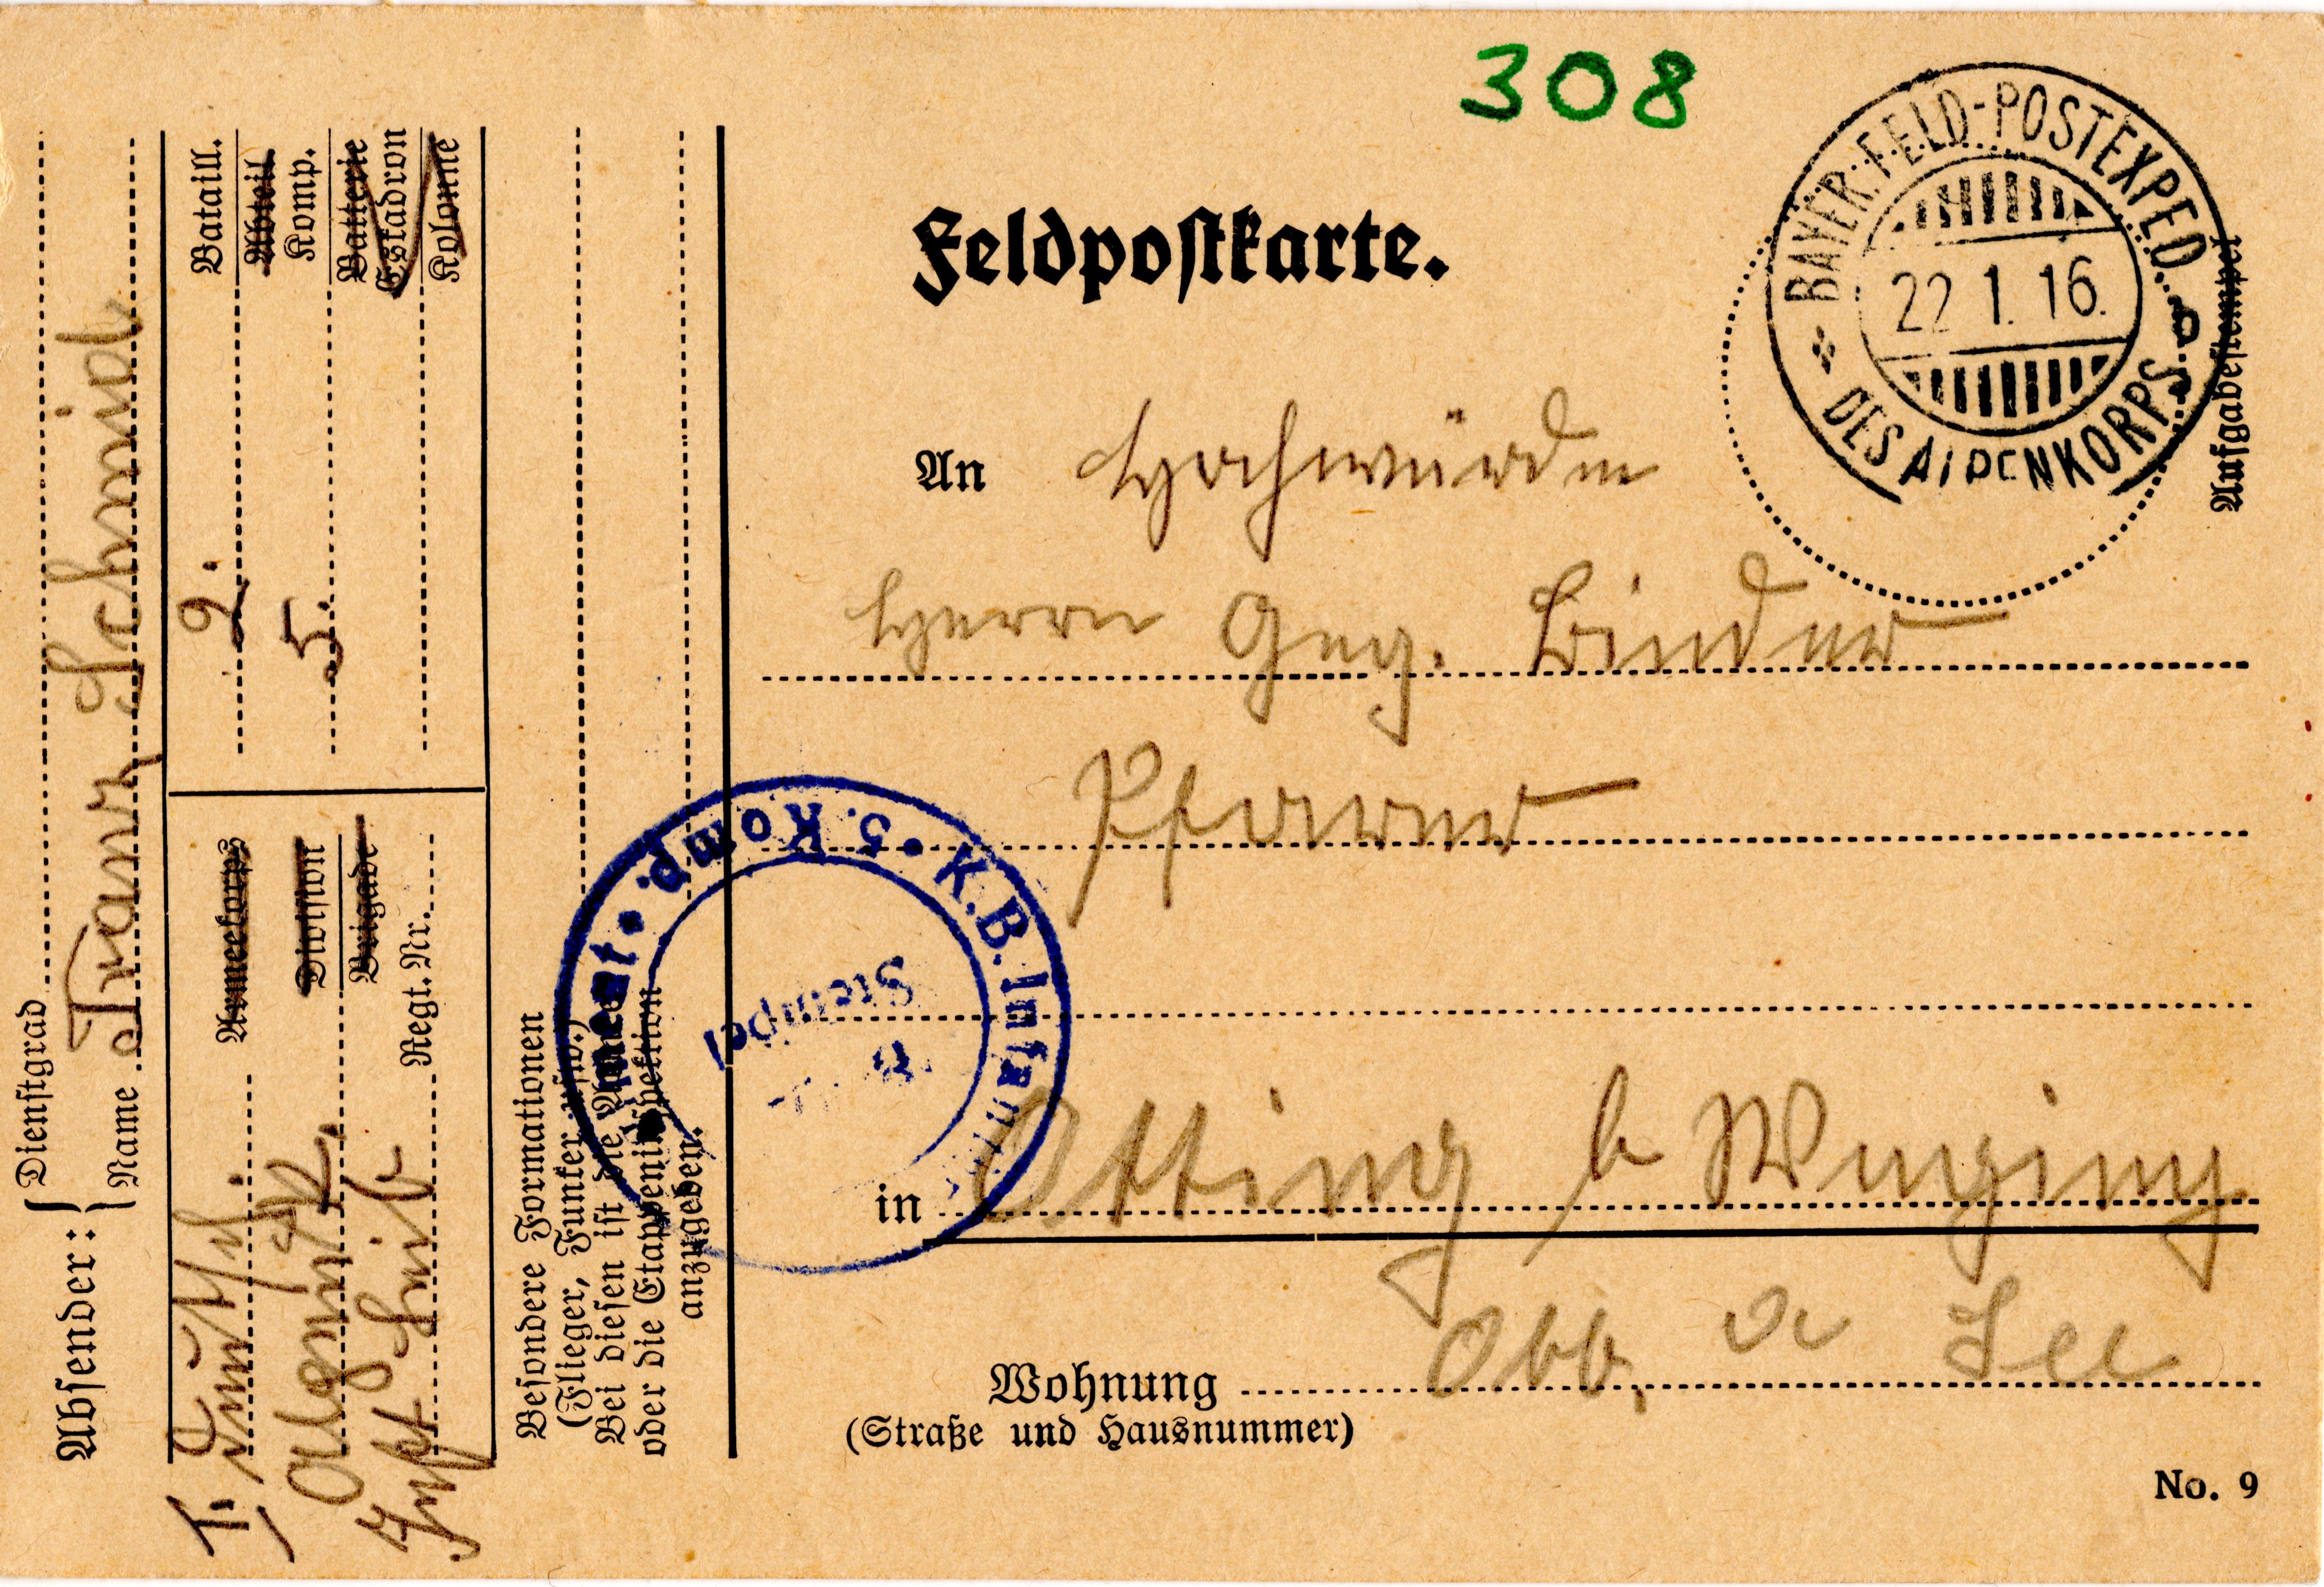 308
Feldpostkarte.
BAYER. FELD-POSTEXPED.
22 1. 16.
DES ALPENKORPS
Aufgabestempel
An Hochwürden
Herrn Geg. Binder
Pfarrer
in Otting b Waging
Obb. a See
Wohnung
(Straße und Hausnummer)
No. 9
Absender:
Dienstgrad
Name Franz Schmid
Armeekorps
Division
Brigade
Regt. Nr.
Bataill. 2.
Abteil.
Komp. 5.
Batterie
Eskadron
Kolonne
Deutsch.
Alpenk.
Inft Leib
Besondere Formationen
(Flieger, Funker usw.)
Bei diesen ist die Armee
oder die Etappeninspektion
anzugeben.
K.B. Infanterie
5. Komp.
Stempel